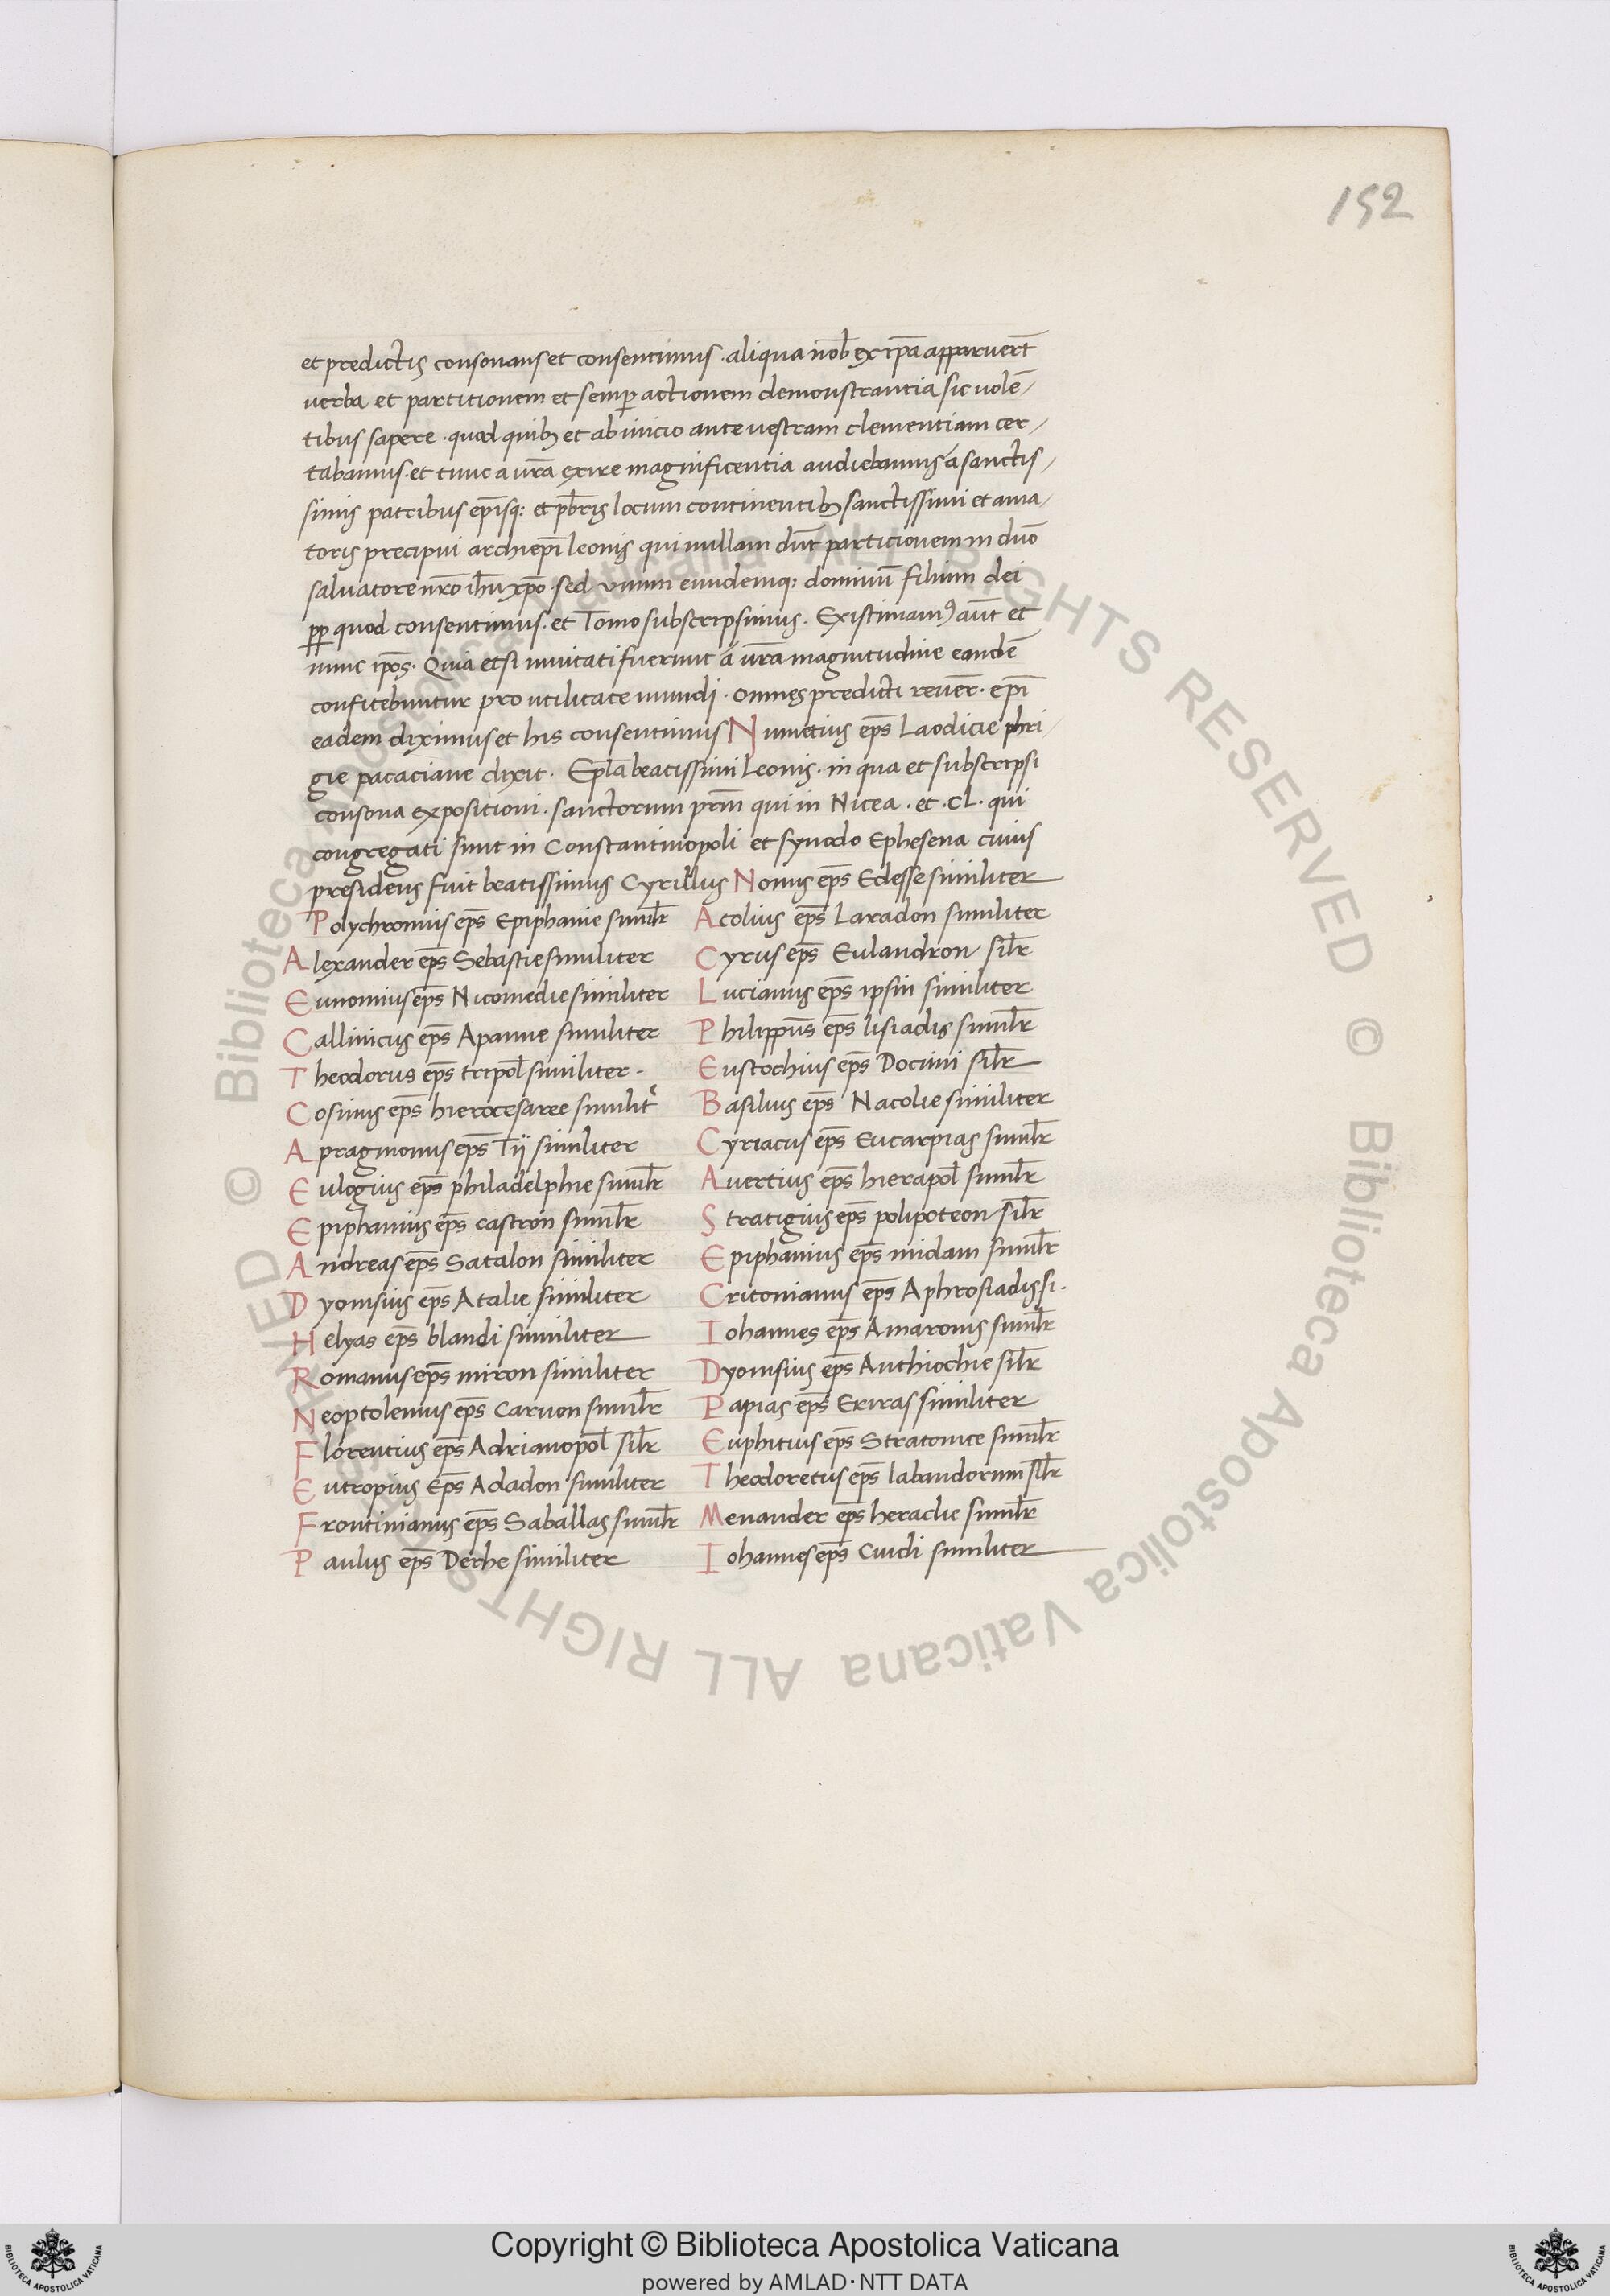 152
et predictis consonans et consentimus · aliqua nob̄ ex ip̄a apparuer̄t
uerba et partitionem et semꝑ actionem demonstrantia sic uolē-
tibus sapere · quod quibꝫ et ab inicio ante uestram clementiam cer-
tabamus · et tunc a ur̄a exire magnificentia audiebamus á sanctis-
simis patribus ep̄isq: et pb̄ris locum continentibꝫ sanctissimi et ama-
toris precipui archiep̄i leonis qui nullam dn̄t particionem in duō
saluatore nr̄o ih̄u xp̄o · sed unum eundemq: dominū filium dei
pp̄ quod consentimus · et Tomo subscripsimus · Existimamꝰ aūt et
nunc ip̄os · Quia etsi inuitati fuerunt á ur̄a magnitudine eandē
confitebuntur pro utilitate mundi · omnes predicti reuer̄ · ep̄i
eadem diximus et his consentimus Nunetius ep̄s Laodicie phri-
gie pacaciane dixit · Ep̄la beatissimi Leonis · in qua et subscripsi
consona expositioni · sanctorum prm̄ qui in Nicea · et · cl · qui
congregati sunt in Constantinopoli et synodo Ephesena cuius
presidens fuit beatissimus Cyrillus Nonus ep̄s Edesse similiter
Polychronius ep̄s Epiphanie simil̄r
Alexander ep̄s Sebastie similiter
Eunomius ep̄s Nicomedie similiter
Callinicus ep̄s Apamie similiter
Theodorus ep̄s tripol̄ similiter -
Cosinus ep̄s hierocesaree similit̄
Apragmonus ep̄s Tij similiter
Eulogius ep̄s philadelphie simil̄r
Epiphanius ep̄s castron simil̄r
Andreas ep̄s Satalon similiter
Dyonisius ep̄s Atalie similiter
Helyas ep̄s blandi similiter
Romanus ep̄s miron similiter
Neoptolemus ep̄s Caruon simil̄r
Florentius ep̄s Adrianopol̄ sil̄r
Eutropius Ep̄s Adadon similiter
Frontinianus ep̄s Saballas simil̄r
Paulus ep̄s Derbe similiter
Acolius ep̄s Laradon similiter
Cyrus ep̄s Eulandron sil̄r
Lucianus ep̄s ipsin similiter
Philippus ep̄s lisiadis simil̄r
Eustochius ep̄s Docimi sil̄r
Basilius ep̄s Nacolie similiter
Cyriacus ep̄s Eucarpias simil̄r
Auertius ep̄s hierapol̄ simil̄r
Stratigius ep̄s polipoteon sil̄r
Epiphanius ep̄s midam simil̄r
Critonianus ep̄s Aphrosiadis si·
Iohannes ep̄s Amaronis simil̄r
Dyonisius ep̄s Anthiochie sil̄r
Papias ep̄s Eriras similiter
Euphitius ep̄s Stratonice simil̄r
Theodoretus ep̄s labandorum sil̄r
Menander ep̄s heraclie simil̄r
Iohannes ep̄s Cnidi similiter
© Biblioteca Apostolica Vaticana ALL RIGHTS RESERVED
© Biblioteca Apostolica Vaticana ALL RIGHTS RESERVED
Copyright © Biblioteca Apostolica Vaticana
powered by AMLAD·NTT DATA
BIBLIOTECA APOSTOLICA VATICANA
BIBLIOTECA APOSTOLICA VATICANA